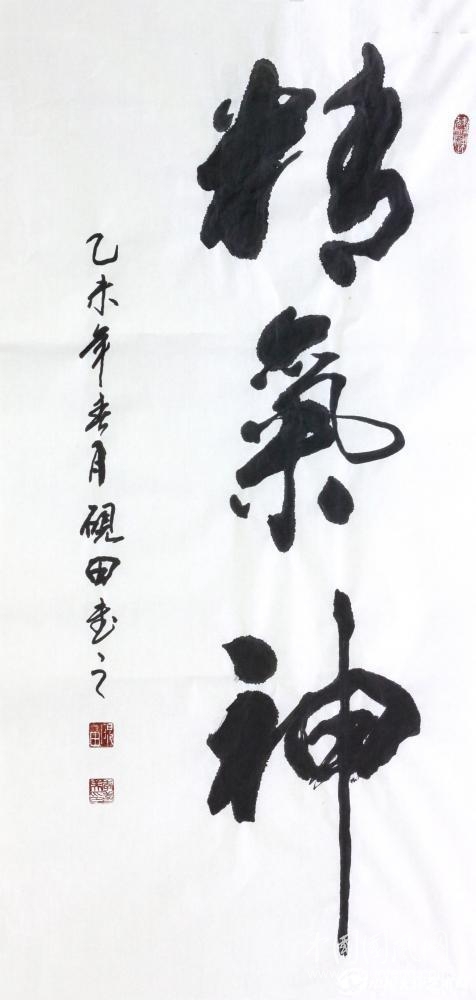 精氣神
乙未年春月硯田書之